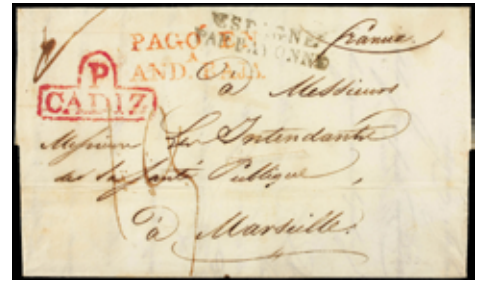 PAGO EN
ANDALUCIA
ESPAGNE
PAR BAYONNE
france
P
CADIZ
à Messieurs
Messieurs Les Intendants
de la Santé Publique
à Marseille.